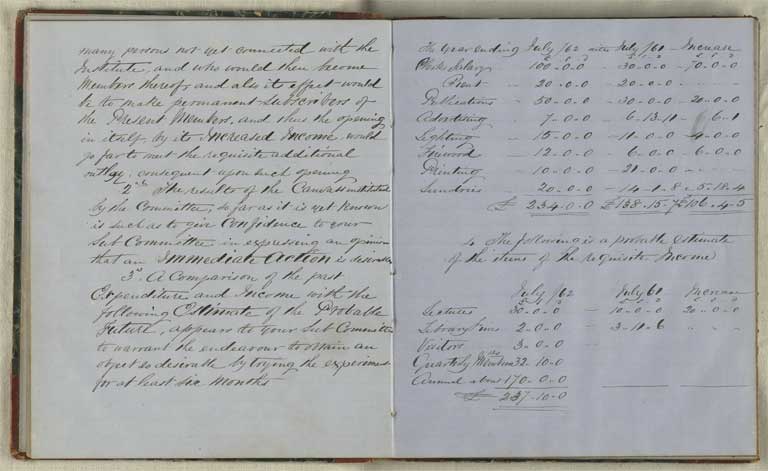 many persons not yet connected with the
Institute, and who would then become
Members thereof, and also its effect would
be to make permanent Subscribers of
the Present Members, and thus the opening
in itself, by its Increased Income, would
go far to meet the requisite additional
outlay, consequent upon such opening
2nd The result of the Canvass instituted
by the Committee, so far as it is yet known
is such as to give Confidence to your
Sub Committee in expressing an opinion
that an Immediate Action is desirable
3d. A Comparison of the past
Expenditure and Income with the
following Estimate of the Probable
Future, appears to your Sub Committee
to warrant the endeavour to obtain an
object so desirable by trying the experiment
for at least six Months
The Year ending July /62 July /60 Increase
Clerks Salary 100-0-0 30-0-0 70-0-0
Rent 20-0-0 20-0-0
Publications 50-0-0 30-0-0 20-0-0
Advertising 7-0-0 6-13-11 6-1
Lighting 15-0-0 11-0-0 4-0-0
Firewood 12-0-0 6-0-0 6-0-0
Printing 10-0-0 21-0-0
Sundries 20-0-0 14-1-8 5-18-4
£ 234-0-0 £138-15-7 £106-4-5
4 The following is a probable estimate
of the items of the requisite Income
July /62 July 60 Increase
Lectures 30-0-0 10-0-0 20-0-0
Library Fines 2-0-0 3-10-6
Visitors 3-0-0
Quarterly Members 32-10-0
Annual about 170-0-0
£ 237-10-0